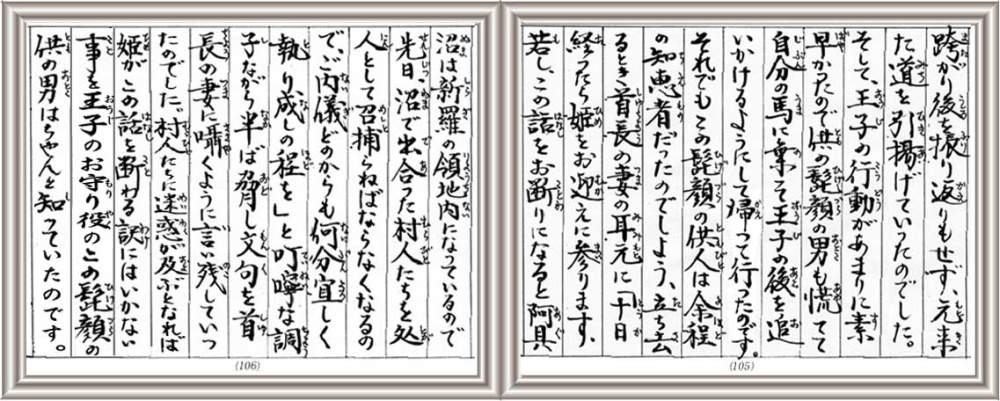 跨がり後を振り返りもせず、元来
た道を引揚げていったのでした。
そして、王子の行動があまりに素
早かったので供の髭顔の男も慌てて
自分の馬に乗って王子の後を追
いかけるようにして帰って行ったのです。
それでもこの髭顔の供人は余程
の知恵者だったのでしょう、立ち去
るとき首長の妻の耳元に「十日
経ったら姫をお迎えに参ります、
若し、この話をお断りになると阿具
(105)
沼は新羅の領地内になっているので
先日、沼で出合った村人たちを処
人として召捕らねばならなくなるの
で、ご内儀どのからも何分宜しく
執り成しの程を」と叮嚀な調
子ながら半ば脅し文句を首
長の妻に囁くように言い残していっ
たのでした。村人たちに迷惑が及ぶとなれば
姫がこの話を断わる訳にはいかない
事を王子のお守り役のこの髭顔の
供の男はちゃんと知っていたのです。
(106)